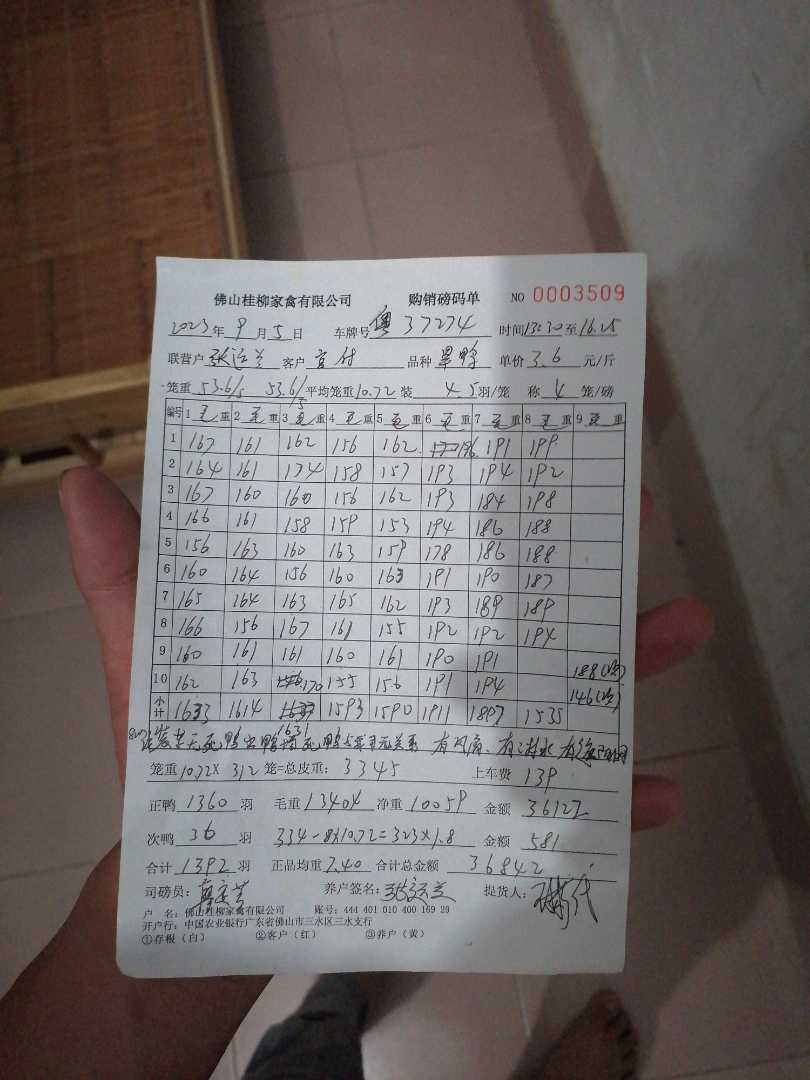 佛山桂柳家禽有限公司 购销磅码单 NO 0003509
2023年9月5日 车牌号 粤37274 时间13:30至16:25
联营户 客户 品种 单价3.6元/斤
笼重53.6/5 53.6/5 平均笼重10.72 装 45羽/笼 称 4 笼/磅
编号 1毛重 2毛重 3毛重 4毛重 5毛重 6毛重 7毛重 8毛重 9毛重
1 167 161 162 156 162 196 191 199
2 164 161 174 158 157 193 194 192
3 167 160 160 156 162 193 184 198
4 166 161 158 159 153 194 186 188
5 156 163 160 163 159 178 186 188
6 160 164 156 160 163 191 190 187
7 165 164 163 165 162 193 189 189
8 166 156 167 161 155 192 192 194
9 160 161 161 160 161 190 191 188(次)
10 162 163 170 155 156 191 194 146(次)
小计 1633 1614 1631 1593 1590 1911 1897 1535
笼重10.72×312笼=总皮重:3345 上车费 139
正鸭1360羽 毛重13404 净重10059 金额36122
次鸭36羽 334-8×10.72=323×1.8 金额581
合计1392羽 正品均重7.40 合计总金额36842
司磅员: 养户签名: 提货人:
户 名:佛山桂柳家禽有限公司 账号:444 401 010 400 169 29
开户行:中国农业银行广东省佛山市三水区三水支行
①存根(白) ②客户(红) ③养户(黄)